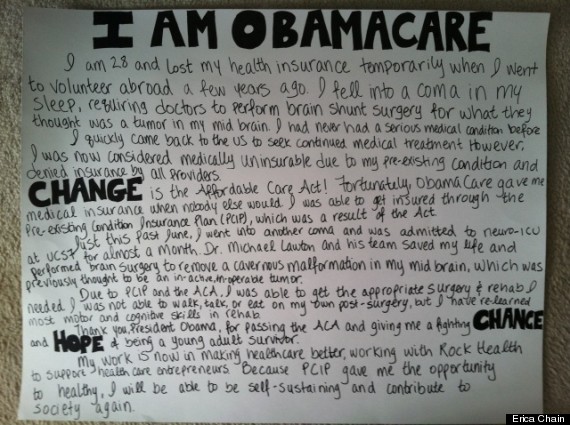 I AM OBAMACARE
I am 28 and lost my health insurance temporarily when I went
to volunteer abroad a few years ago. I fell into a coma in my
sleep, requiring doctors to perform brain shunt surgery for what they
thought was a tumor in my mid brain. I had never had a serious medical condition before
I quickly came back to the US to seek continued medical treatment. However,
I was now considered medically uninsurable due to my pre-existing condition and
denied insurance by all providers.
CHANGE is the Affordable Care Act! Fortunately, ObamaCare gave me
medical insurance when nobody else would. I was able to get insured through the
Pre-existing Condition Insurance Plan (PCIP), which was a result of the Act.
Just this past June, I went into another coma and was admitted to neuro-ICU
at UCSF for almost a month. Dr. Michael Lawton and his team saved my life and
performed brain surgery to remove a cavernous malformation in my mid brain, which was
previously thought to be an in-active, inoperable tumor.
Due to PCIP and the ACA, I was able to get the appropriate surgery & rehab I
needed. I was not able to walk, talk, or eat on my own post-surgery, but I have re-learned
most motor and cognitive skills in rehab.
Thank you, President Obama, for passing the ACA and giving me a fighting CHANCE
and HOPE of being a young adult survivor.
My work is now in making healthcare better, working with Rock Health
to support healthcare entrepreneurs. Because PCIP gave me the opportunity
to healthy, I will be able to be self-sustaining and contribute to
society again.
Erica Chain